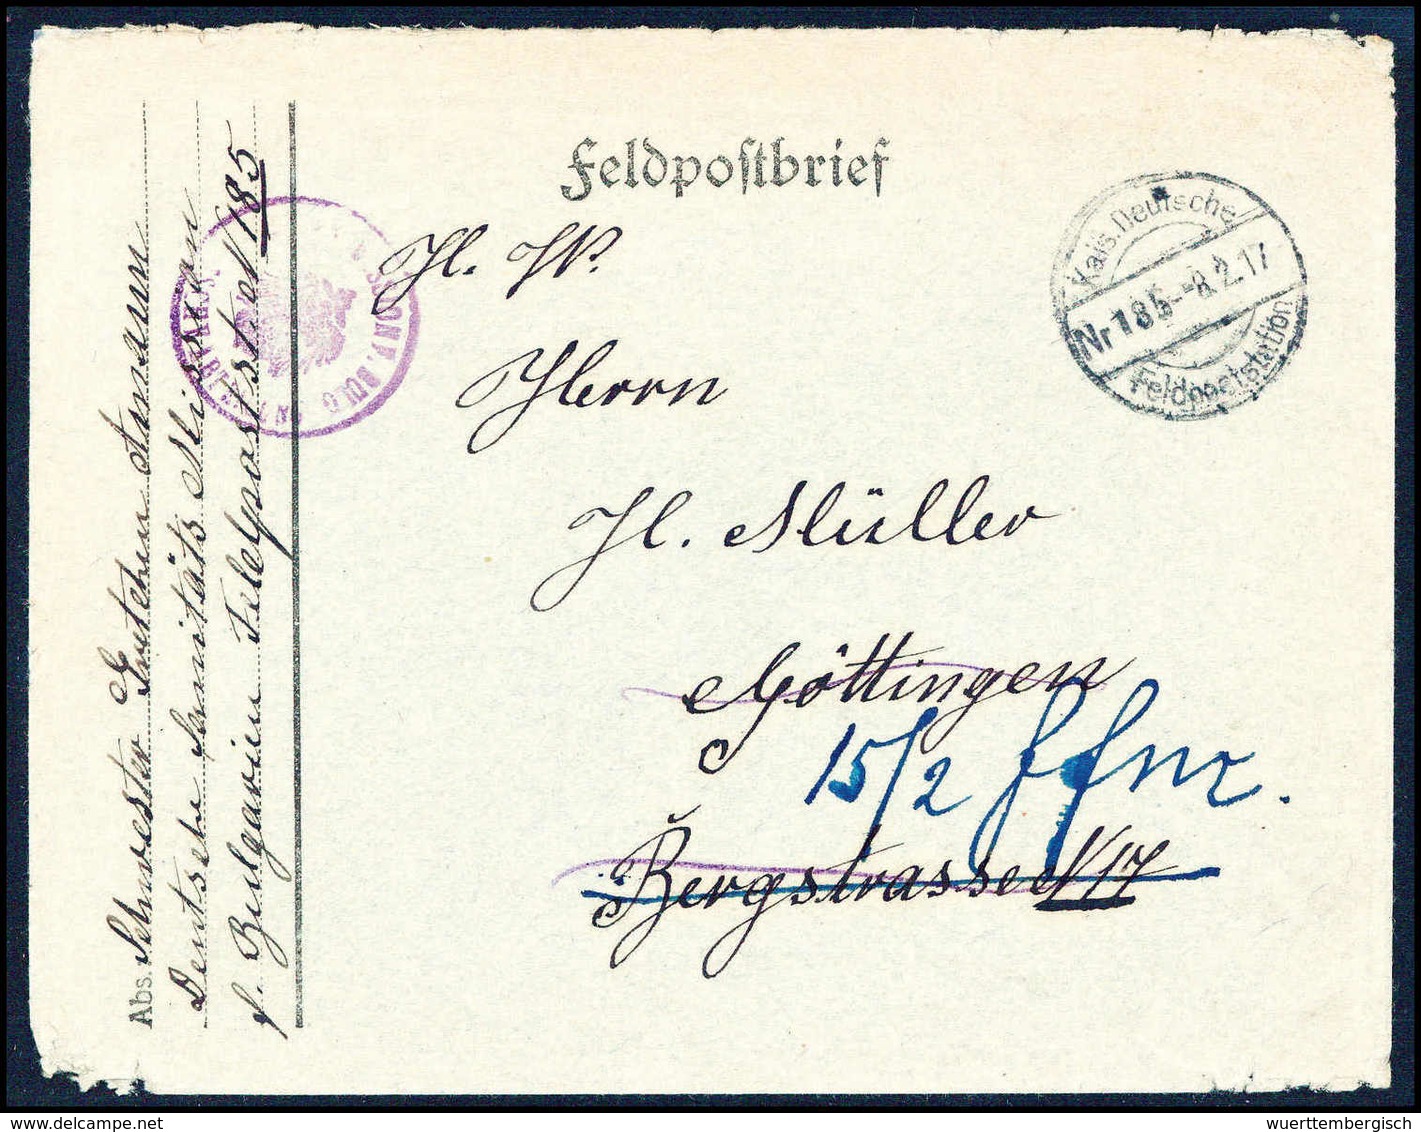 Feldpostbrief
Kais. Deutsche
Nr 185 - 8 2.17
Feldpoststation
H. W.
Herrn
H. Müller
Göttingen
15/2
Bergstrasse N 17
Abs. Schwester Gretchen
Deutsche Sanitäts Mission
f. Bulgarien Feldpoststat. N 185
wuerttembergisch